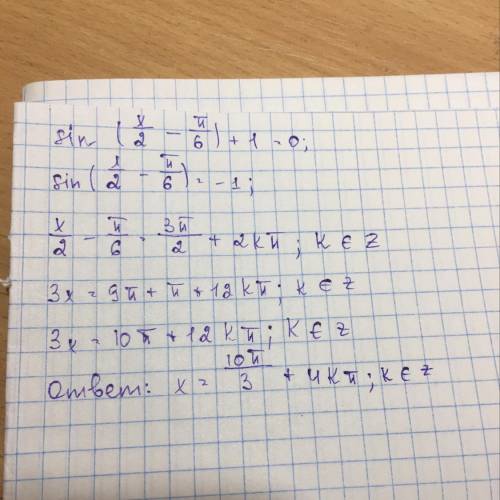 sin (x/2 - π/6) + 1 = 0;
sin (x/2 - π/6) = -1;
x/2 - π/6 = 3π/2 + 2kπ; k ∈ Z
3x = 9π + π + 12kπ; k ∈ Z
3x = 10π + 12kπ; k ∈ Z
Ответ: x = 10π/3 + 4kπ; k ∈ Z